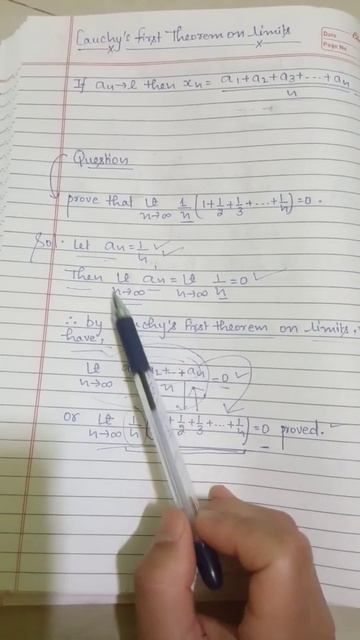 Cauchy's first Theorem on limits
Date
Page No
If an→l then xn = a1+a2+a3+---+an / n
Question
prove that lt n→∞ 1/n (1+1/2+1/3+---+1/n)=0.
Sol. let an=1/n
Then lt n→∞ an = lt n→∞ 1/n =0
∴ by Cauchy's first theorem on limits.
have,
lt n→∞ +...+an / n =0
or lt n→∞ 1/n ( +1/2+1/3+...+1/n)=0 proved.